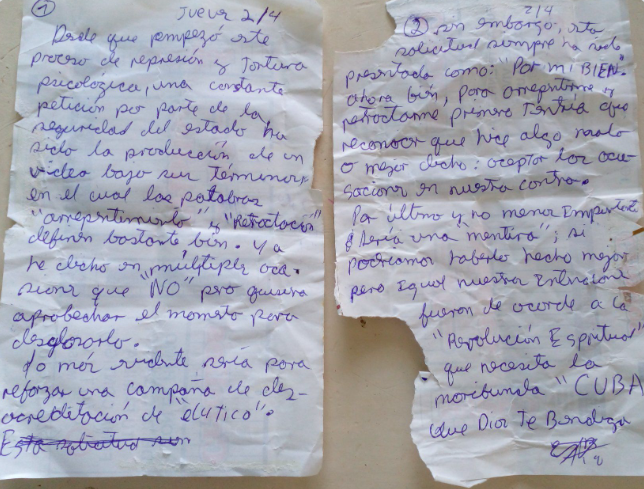 ①
Jueves 2/4
Desde que empezó este
proceso de represión y tortura
psicológica, una constante
petición por parte de la
seguridad del estado ha
sido la producción de un
video bajo sus terminos
en el cual las palabras
"arrepentimiento" y "Retractación"
definen bastante bien. Ya
he dicho en múltiples oca-
siones que "NO" pero quisiera
aprobechar el momento para
desglosarlo.
lo más evidente sería para
reforzar una campaña de dez-
acreditación de "el4tico".
Esta solicitud sin
2/4
② sin embargo, esta
solicitud siempre ha sido
presentada como: "Por mi BIEN"
ahora bien, para arrepentirme y
retractarme primero tendría que
reconocer que hice algo malo
o mejor dicho: aceptar las acu-
saciones en nuestra contra.
Por último y no menos importante
Sería una "mentira"; si
podriamos haberlo hecho mejor
pero igual nuestras intenciones
fueron de acorde a la
"Revolución Espiritual"
que necesita la
moribunda "CUBA
Que Dios Te Bendiga